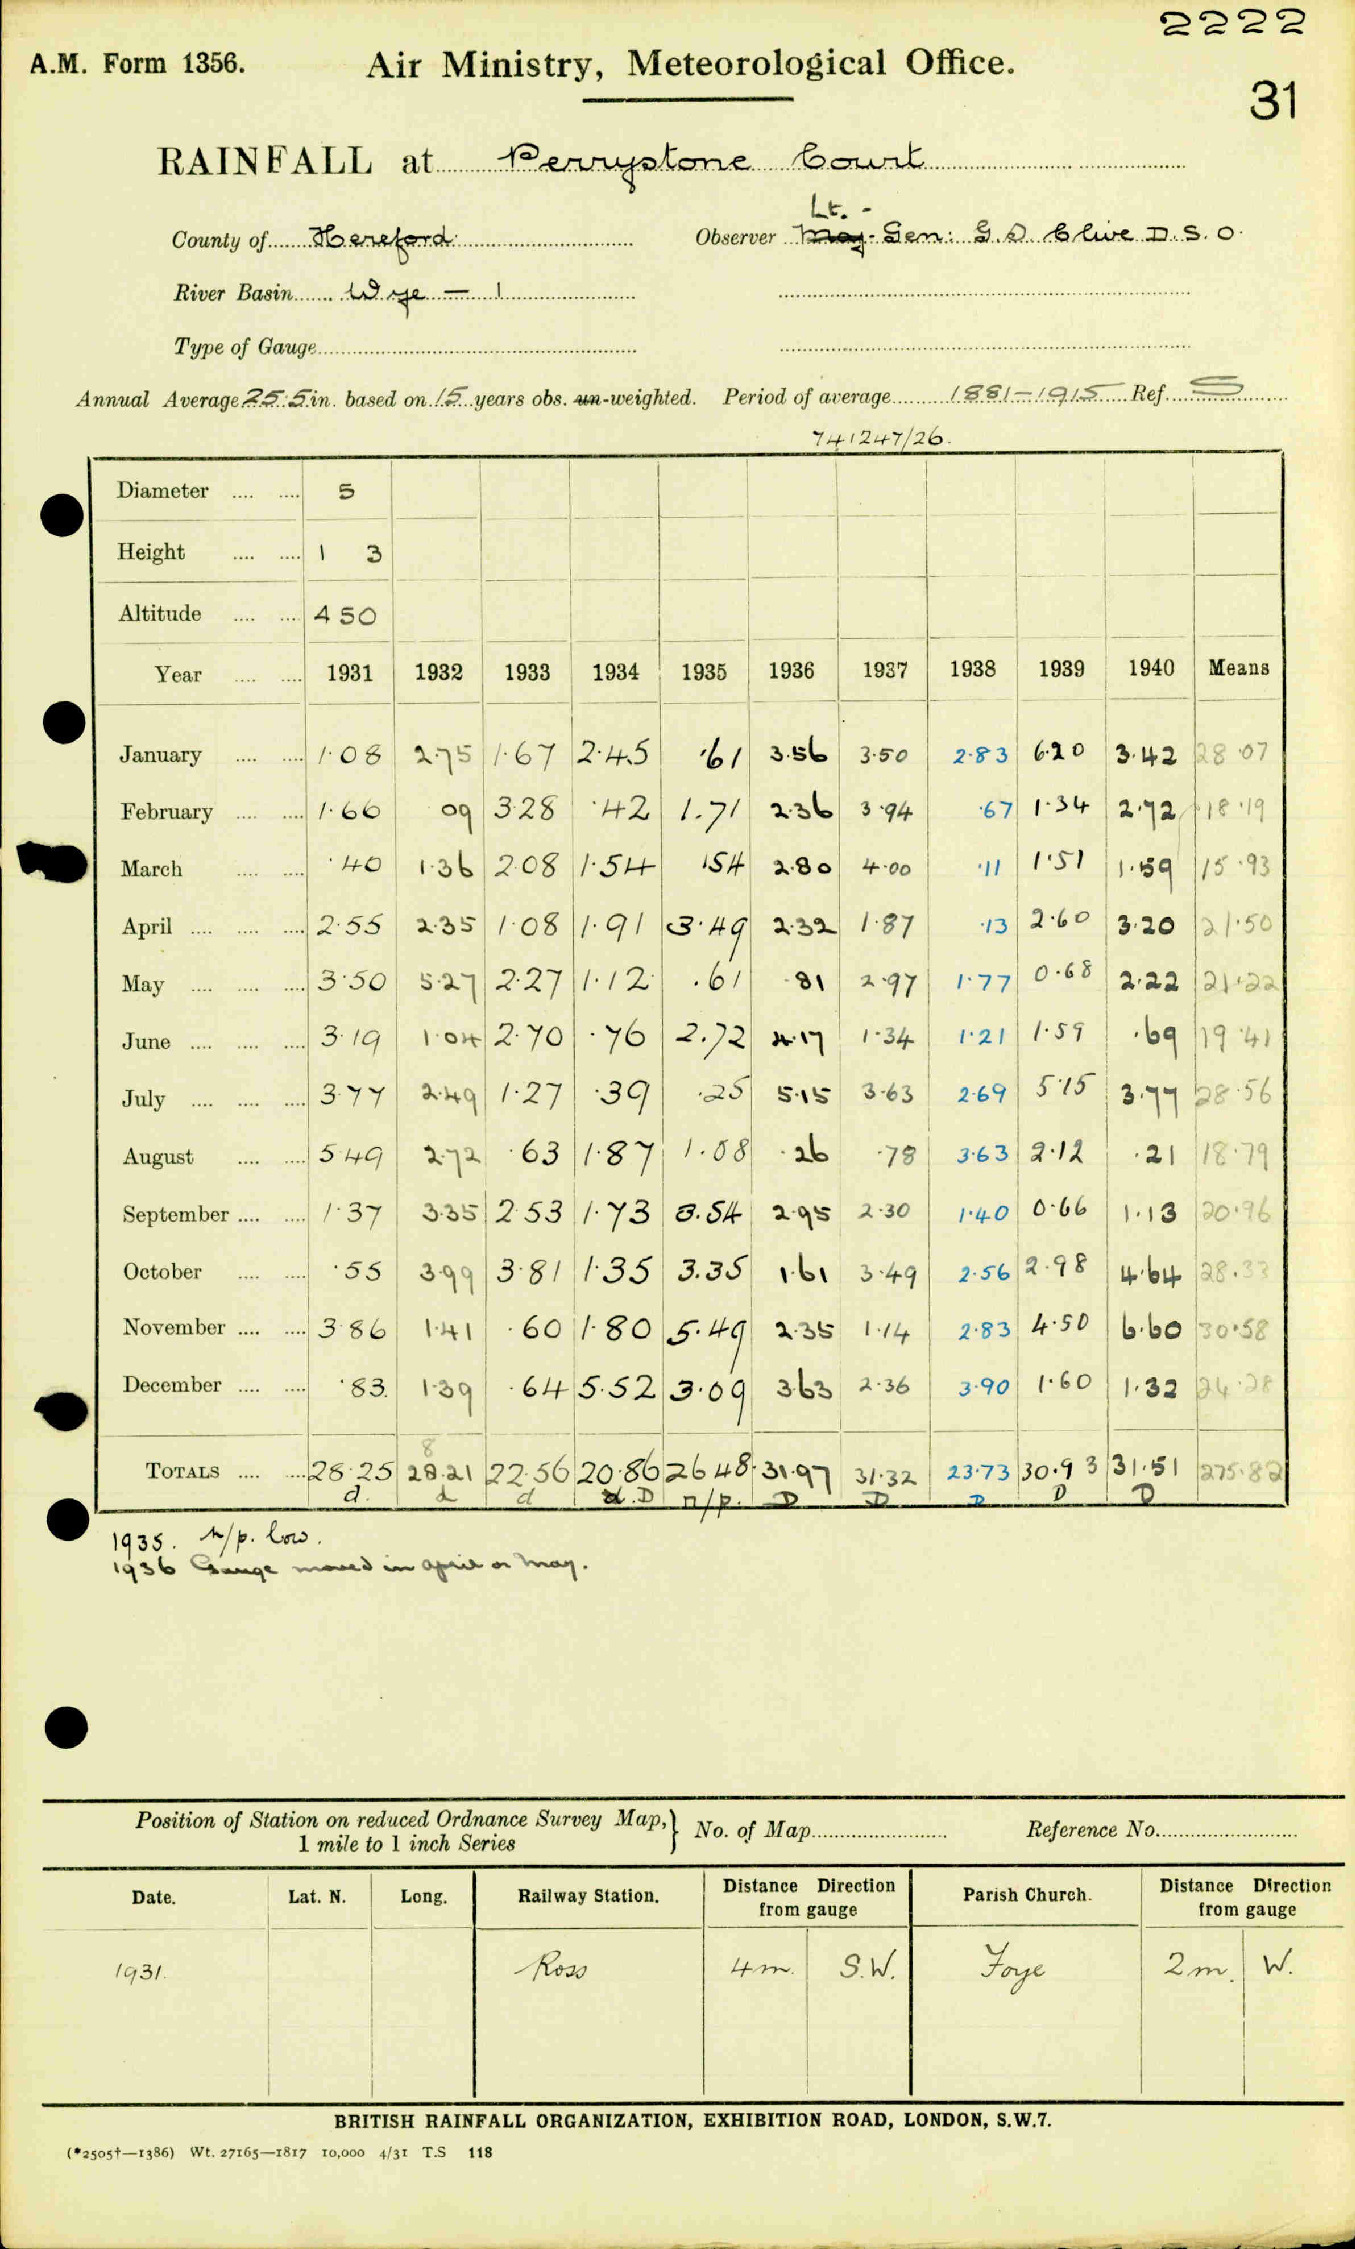 2222
A.M. Form 1356. Air Ministry, Meteorological Office.
31
RAINFALL at Perrystone Court
Lt. -
County of Hereford Observer Maj. Gen: G.S. Clive D.S.O.
River Basin Wye — 1
Type of Gauge
Annual Average 25.5 in. based on 15 years obs. un-weighted. Period of average 1881-1915 Ref. S
741247/26.
Diameter .... .... 5
Height .... .... 1 3
Altitude .... .... 450
Year .... .... 1931 1932 1933 1934 1935 1936 1937 1938 1939 1940 Means
January .... .... 1.08 2.75 1.67 2.45 .61 3.56 3.50 2.83 6.20 3.42 28.07
February .... .... 1.66 09 3.28 .42 1.71 2.36 3.94 .67 1.34 2.72 18.19
March .... .... .40 1.36 2.08 1.54 .54 2.80 4.00 .11 1.51 1.59 15.93
April .... .... .... 2.55 2.35 1.08 1.91 3.49 2.32 1.87 .13 2.60 3.20 21.50
May .... .... .... 3.50 5.27 2.27 1.12 .61 .81 2.97 1.77 0.68 2.22 21.22
June .... .... .... 3.19 1.04 2.70 .76 2.72 4.17 1.34 1.21 1.59 .69 19.41
July .... .... .... 3.77 2.49 1.27 .39 .25 5.15 3.63 2.69 5.15 3.77 28.56
August .... .... 5.49 2.72 .63 1.87 1.08 .26 .78 3.63 2.12 .21 18.79
September .... .... 1.37 3.35 2.53 1.73 3.54 2.95 2.30 1.40 0.66 1.13 20.96
October .... .... .55 3.99 3.81 1.35 3.35 1.61 3.49 2.56 2.98 4.64 28.33
November .... .... 3.86 1.41 .60 1.80 5.49 2.35 1.14 2.83 4.50 6.60 30.58
December .... .... .83 1.39 .64 5.52 3.09 3.63 2.36 3.90 1.60 1.32 24.28
8
TOTALS .... .... 28.25 28.21 22.56 20.86 26.48 31.97 31.32 23.73 30.93 31.51 275.82
d. d d d. D n/p. D D D D D
1935. n/p. low.
1936 Gauge moved in april or May.
Position of Station on reduced Ordnance Survey Map, 1 mile to 1 inch Series } No. of Map Reference No.
Date. Lat. N. Long. Railway Station. Distance Direction from gauge Parish Church. Distance Direction from gauge
1931. Ross 4m. S.W. Foye 2m. W.
BRITISH RAINFALL ORGANIZATION, EXHIBITION ROAD, LONDON, S.W.7.
(*2505†—1386) Wt. 27165—1817 10,000 4/31 T.S 118